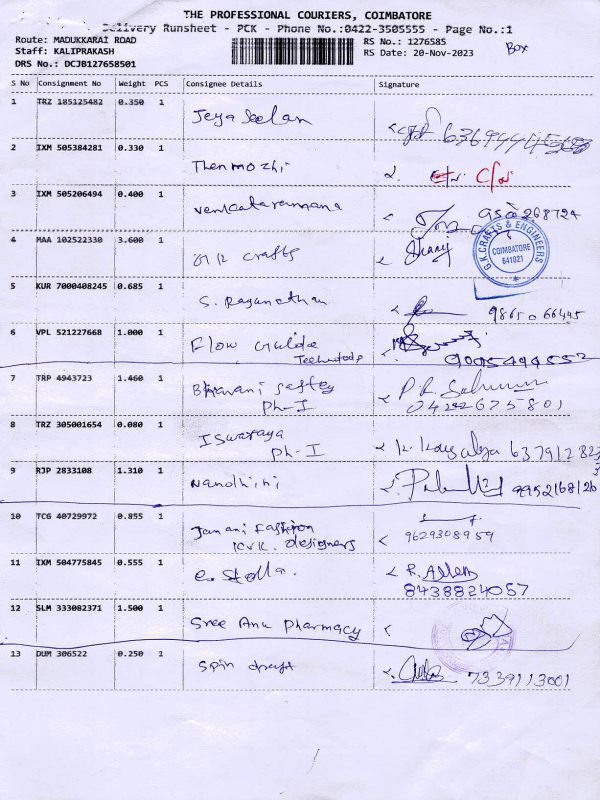 THE PROFESSIONAL COURIERS, COIMBATORE
Delivery Runsheet - PCK - Phone No.:0422-3505555 - Page No.:1
Route: MADUKKARAI ROAD RS No.: 1276585 Box
Staff: KALIPRAKASH RS Date: 20-Nov-2023
DRS No.: DCJB127658501
S No Consignment No Weight PCS Consignee Details Signature
1 TRZ 185125482 0.350 1 Jeya Seelan
2 IXM 505384281 0.330 1 Thenmozhi
3 IXM 505206494 0.400 1 Venkataramana
4 MAA 102522330 3.600 1 crafts
G.K.CRAFTS & ENGINEERS COIMBATORE 641021
5 KUR 7000408245 0.685 1 S. Raganathan 98650 66445
6 VPL 521227668 1.000 1 Flow Guide
7 TRP 4943723 1.460 1 Ph-I 0422675801
8 TRZ 305001654 0.080 1 Iswaraya
Ph-I
9 RJP 2833108 1.310 1 Nandhini
10 TCG 40729972 0.855 1 Janani Fashion 9629308959
K.V.K. designers
11 IXM 504775845 0.555 1 e. Stella. R. Allen
8438824057
12 SLM 333082371 1.500 1 Sree Anu Pharmacy
13 DUM 306522 0.250 1 Spin 7339113001